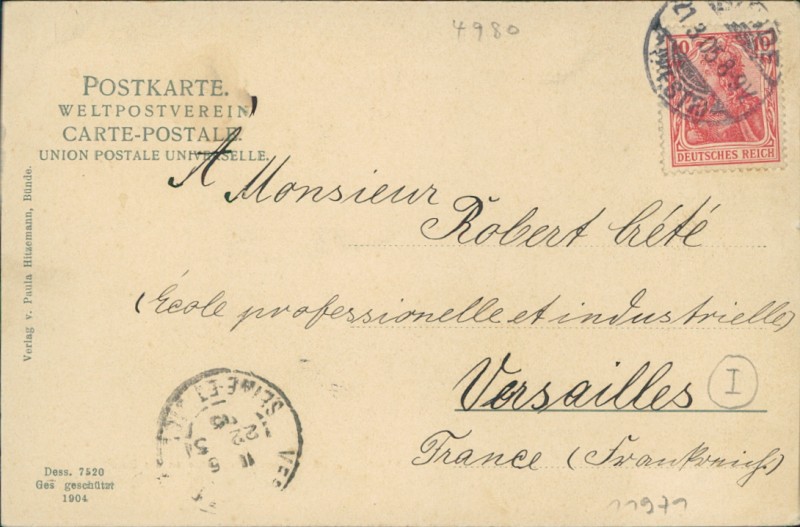 4980
POSTKARTE.
WELTPOSTVEREIN.
CARTE-POSTALE.
UNION POSTALE UNIVERSELLE.
10 10
DEUTSCHES REICH
21.3.05.8-9V.
A Monsieur
Robert Crété
(École professionelle et industrielle)
Versailles
I
France (Frankreich)
Verlag v. Paula Hitzemann, Bünde.
SEINE-ET
22
Dess. 7520
Ges geschützt
1904
11971